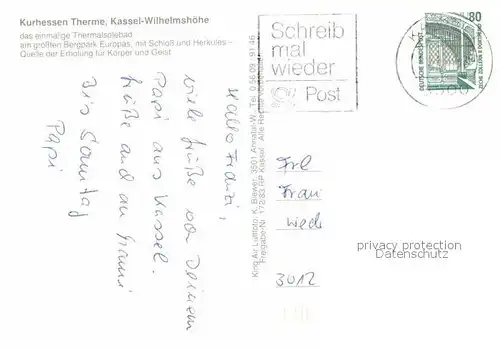 Kurhessen Therme, Kassel-Wilhelmshöhe
das einmalige Thermalsolebad
am größten Bergpark Europas, mit Schloß und Herkules -
Quelle der Erholung für Körper und Geist
Schreib
mal
wieder
Post
80
DEUTSCHE BUNDESPOST
Hallo Franzi,
viele Grüße von Deinem
Papi aus Kassel.
Grüße auch an Mami
Bis Samstag
Papi
King Air Luftfoto, K. Biewer, 3501 Ahnatal-W. Tel 0 56 09 / 91 46
Freigabe-Nr. 172/83 RP Kassel
Frl
Fran
Wede
3012
privacy protection
Datenschutz